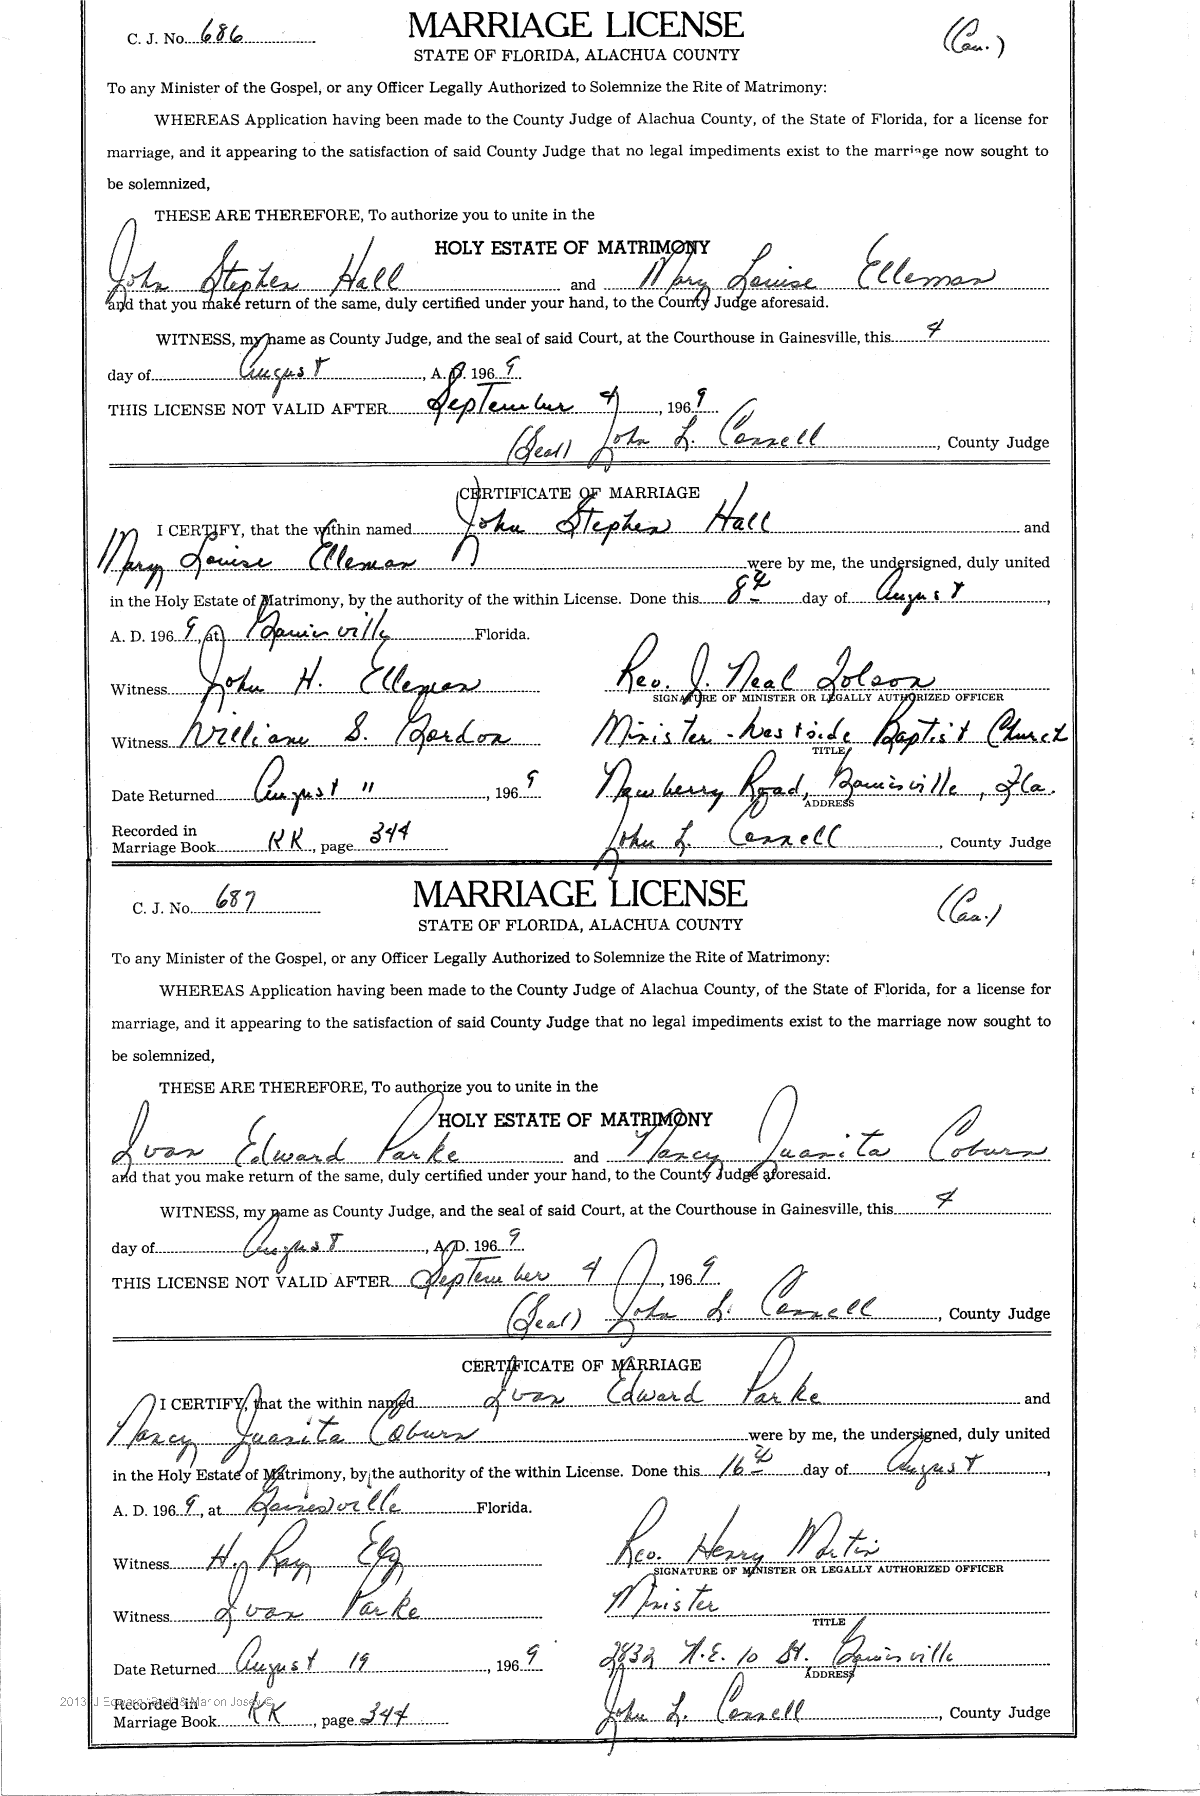 C. J. No. 686
MARRIAGE LICENSE
(Cau.)
STATE OF FLORIDA, ALACHUA COUNTY
To any Minister of the Gospel, or any Officer Legally Authorized to Solemnize the Rite of Matrimony:
WHEREAS Application having been made to the County Judge of Alachua County, of the State of Florida, for a license for
marriage, and it appearing to the satisfaction of said County Judge that no legal impediments exist to the marriage now sought to
be solemnized,
THESE ARE THEREFORE, To authorize you to unite in the
HOLY ESTATE OF MATRIMONY
John Stephen Hall and Mary Louise Elleman
and that you make return of the same, duly certified under your hand, to the County Judge aforesaid.
WITNESS, my name as County Judge, and the seal of said Court, at the Courthouse in Gainesville, this 4
day of August, A. D. 196 9
THIS LICENSE NOT VALID AFTER September 4, 196 9
(Seal) John L. Connell, County Judge
CERTIFICATE OF MARRIAGE
I CERTIFY, that the within named John Stephen Hall and
Mary Louise Elleman were by me, the undersigned, duly united
in the Holy Estate of Matrimony, by the authority of the within License. Done this 8th day of August,
A. D. 196 9, at Gainesville Florida.
Witness John H. Elleman Rev. J. Neal Tolson
SIGNATURE OF MINISTER OR LEGALLY AUTHORIZED OFFICER
Witness William S. Gordon Minister - Westside Baptist Church
TITLE
Date Returned August 11, 196 9 Newberry Road, Gainesville, Fla.
ADDRESS
Recorded in
Marriage Book KK, page 344 John L. Connell, County Judge
C. J. No. 687
MARRIAGE LICENSE
(Cau.)
STATE OF FLORIDA, ALACHUA COUNTY
To any Minister of the Gospel, or any Officer Legally Authorized to Solemnize the Rite of Matrimony:
WHEREAS Application having been made to the County Judge of Alachua County, of the State of Florida, for a license for
marriage, and it appearing to the satisfaction of said County Judge that no legal impediments exist to the marriage now sought to
be solemnized,
THESE ARE THEREFORE, To authorize you to unite in the
HOLY ESTATE OF MATRIMONY
Ivan Edward Parke and Nancy Juanita Coburn
and that you make return of the same, duly certified under your hand, to the County Judge aforesaid.
WITNESS, my name as County Judge, and the seal of said Court, at the Courthouse in Gainesville, this 4
day of August, A. D. 196 9
THIS LICENSE NOT VALID AFTER September 4, 196 9
(Seal) John L. Connell, County Judge
CERTIFICATE OF MARRIAGE
I CERTIFY, that the within named Ivan Edward Parke and
Nancy Juanita Coburn were by me, the undersigned, duly united
in the Holy Estate of Matrimony, by the authority of the within License. Done this 16th day of August,
A. D. 196 9, at Gainesville Florida.
Witness H. Ray Rev. Henry Martin
SIGNATURE OF MINISTER OR LEGALLY AUTHORIZED OFFICER
Witness Ivan Parke Minister
TITLE
Date Returned August 19, 196 9 2832 N.E. 10 St. Gainesville
ADDRESS
Recorded in
Marriage Book KK, page 344 John L. Connell, County Judge